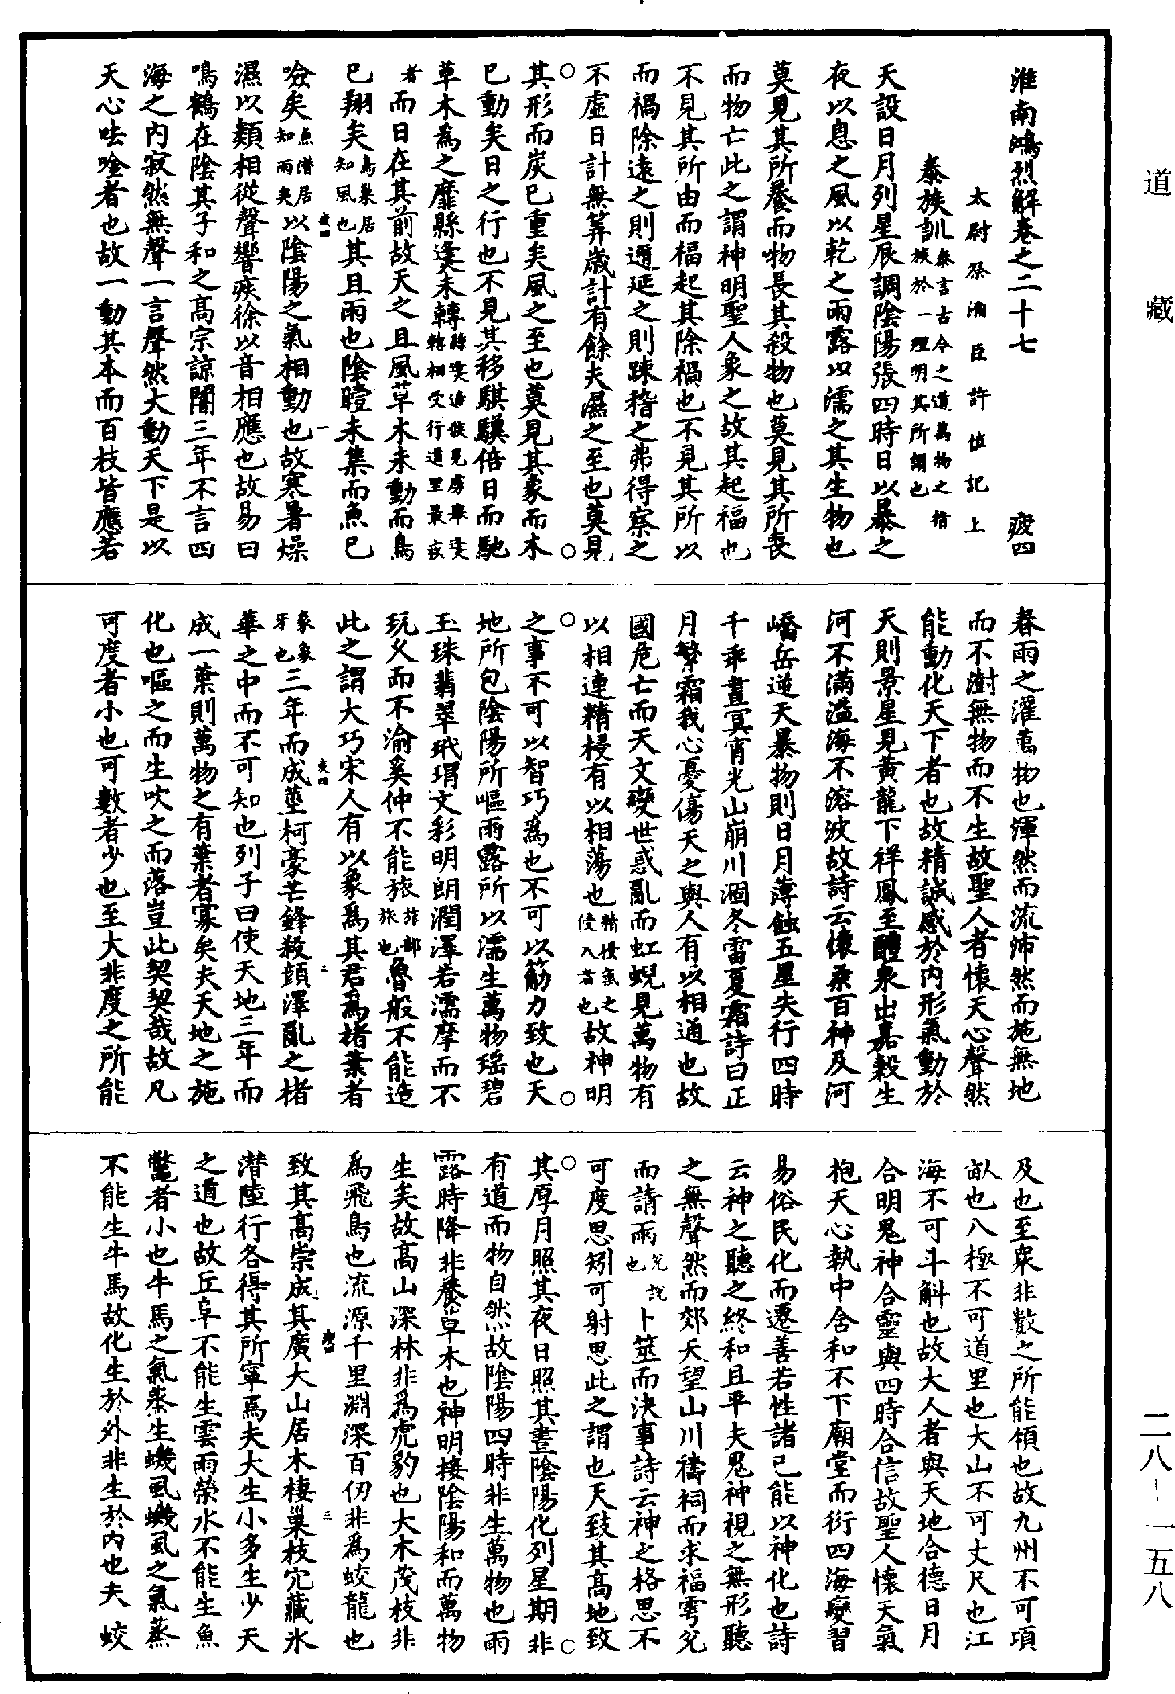 道藏
二八-一五八
淮南鴻烈解卷之二十七 疲四
太尉祭酒臣許慎記上
泰族訓泰言古今之道萬物之指族於一理明其所謂也
天設日月列星辰調陰陽張四時日以暴之
夜以息之風以乾之雨露以濡之其生物也
莫見其所養而物長其殺物也莫見其所喪
而物亡此之謂神明聖人象之故其起福也
不見其所由而福起其除禍也不見其所以
而禍除遠之則邇延之則踈稽之弗得察之
不虛日計無筭歲計有餘夫濕之至也莫見
其形而炭已重矣風之至也莫見其象而木
已動矣日之行也不見其移騏驥倍日而馳
草木為之靡縣㷭未轉
者而日在其前故天之且風草木未動而鳥
已翔矣鳥巢居知風也其且雨也陰曀未集而魚已
噞矣魚潛居知雨矣以陰陽之氣相動也故寒暑燥
濕以類相從聲響疾徐以音相應也故易曰
鳴鶴在陰其子和之高宗諒闇三年不言四
海之內寂然無聲一言聲然大動天下是以
天心呿唫者也故一動其本而百枝皆應若
春雨之灌萬物也渾然而流沛然而施無地
而不澍無物而不生故聖人者懷天心聲然
能動化天下者也故精誠感於內形氣動於
天則景星見黃龍下祥鳳至醴泉出嘉穀生
河不滿溢海不溶波故詩云懷柔百神及河
嶠岳逆天暴物則日月薄蝕五星失行四時
干乖晝冥宵光山崩川涸冬雷夏霜詩曰正
月繁霜我心憂傷天之與人有以相通也故
國危亡而天文變世惑亂而虹蜺見萬物有
以相連精祲有以相蕩也精祲氣之侵入者也故神明
之事不可以智巧為也不可以筋力致也天
地所包陰陽所嘔雨露所以濡生萬物瑶碧
玉珠翡翠玳瑁文彩明朗潤澤若濡摩而不
玩久而不渝奚仲不能旅旅部旅也魯般不能造
此之謂大巧宋人有以象為其君為楮葉者
象象牙也三年而成莖柯豪芒鋒殺顏澤亂之楮
華之中而不可知也列子曰使天地三年而
成一葉則萬物之有葉者寡矣夫天地之施
化也嘔之而生吹之而落豈此契契哉故凡
可度者小也可數者少也至大非度之所能
及也至眾非數之所能領也故九州不可頃
畝也八極不可道里也大山不可丈尺也江
海不可斗斛也故大人者與天地合德日月
合明鬼神合靈與四時合信故聖人懷天氣
抱天心執中含和不下廟堂而衍四海變習
易俗民化而遷善若性諸己能以神化也詩
云神之聽之終和且平夫鬼神視之無形聽
之無聲然而郊天望山川禱祠而求福雩兌
而請雨兌說也卜筮而決事詩云神之格思不
可度思矧可射思此之謂也天致其高地致
其厚月照其夜日照其晝陰陽化列星期非
有道而物自然故陰陽四時非生萬物也雨
露時降非養草木也神明接陰陽和而萬物
生矣故高山深林非為虎豹也大木茂枝非
為飛鳥也流源千里淵深百仞非為蛟龍也
致其高崇成其廣大山居木棲巢枝穴藏水
潛陸行各得其所寧焉夫大生小多生少天
之道也故丘阜不能生雲雨滎水不能生魚
鼈者小也牛馬之氣蒸生蟣虱蟣虱之氣蒸
不能生牛馬故化生於外非生於內也夫蛟